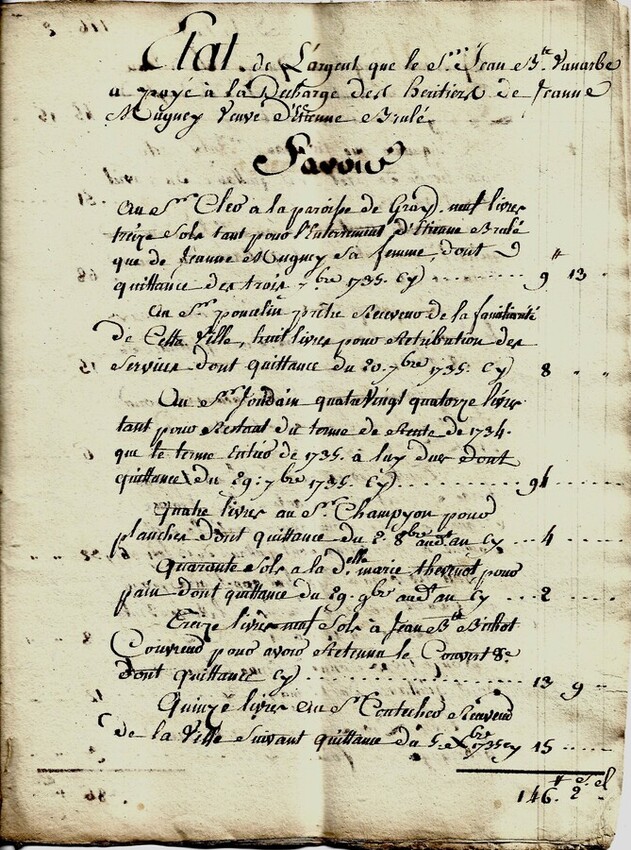 Etat de L'argent que le Sr. Jean Bte. Vanarbe
a payé à la Decharge des heritiers de Jeanne
Mugney Veuve d'Etienne Brulé
Savoir
Au Sr. Cleo a la paroisse de Gray neuf livres
treize sols tant pour l'Enterrement d'Etienne Brulé
que de Jeanne Mugney Sa femme, dont
quittance des trois 7bre 1735. Cy ........ 9 ₶ 13 ..
Au Sr. poncelin prêtre Receveur de la familiarité
de Cette Ville, huit livres pour Retribution des
Services dont quittance du 20 7bre 1735. Cy 8 " "
Au Sr. Jourdain quatrevingt quatorze livres
tant pour Restant du terme de Rente de 1734.
que le terme Entier de 1735. à luy dues dont
quittance du 29: 7bre 1735. Cy ........ 94 ......
Quatre livres au Sr. Champyon pour
planches dont quittance du 2. 8bre aud. an Cy ... 4 ....
Quarante Sols a la delle marie thevenot, pour
pain dont quittance du 29. 9bre aud. an Cy ... 2 ......
Treize livres neuf Sols à Jean Bte
Couvreur pour avoir Retenu le Couvert &c
dont quittance cy .............. 13 9 ..
Quinze livres au Sr. Receveur
de la Ville Suivant quittance du 5. Xbre 1735 cy 15 .....
146. ₶ 2 s. d